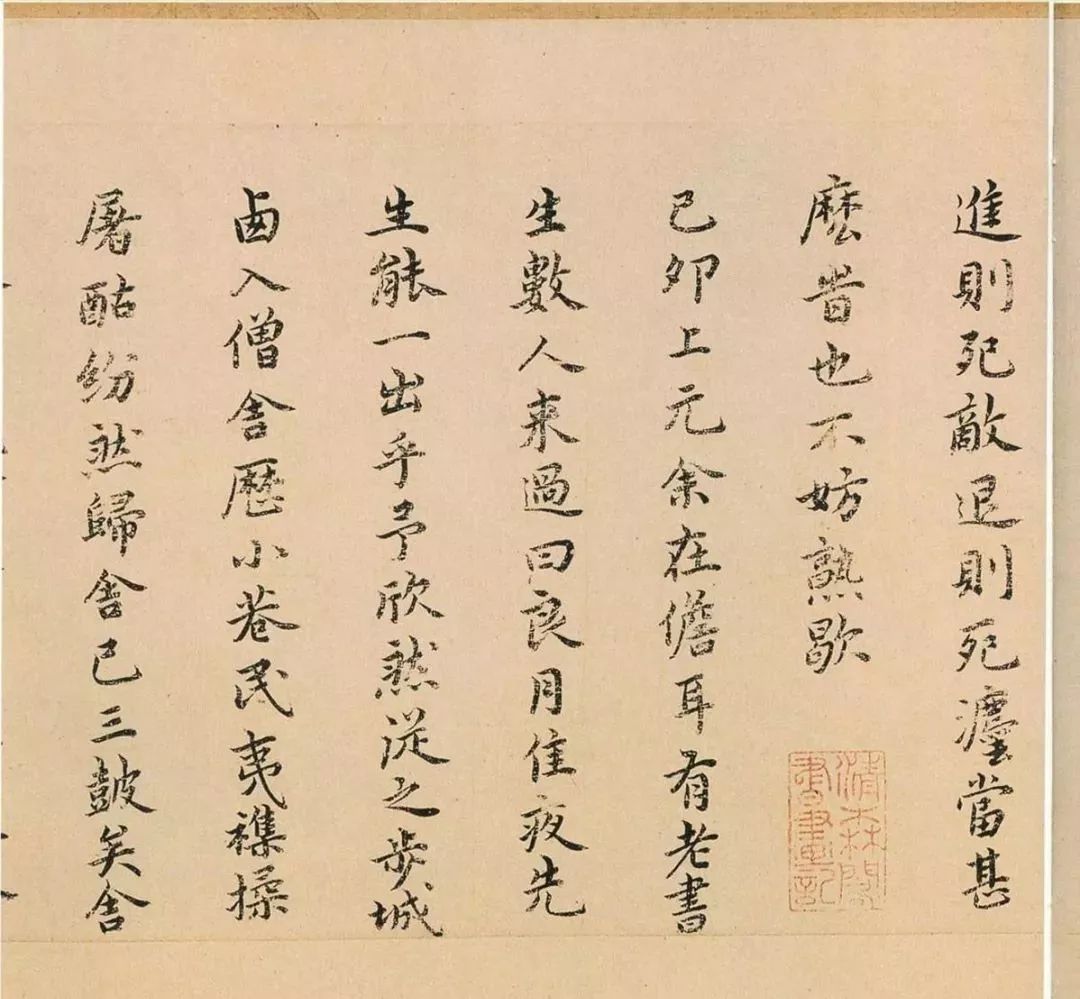 進則死敵退則死灋當甚
麼旹也不妨熟歇
己卯上元余在儋耳有老書
生數人来過曰良月佳夜先
生能一出乎予欣然從之步城
卥入僧舍歷小巷民夷襍揉
屠酤紛然歸舍已三鼓矣舍
清森閣書畫記